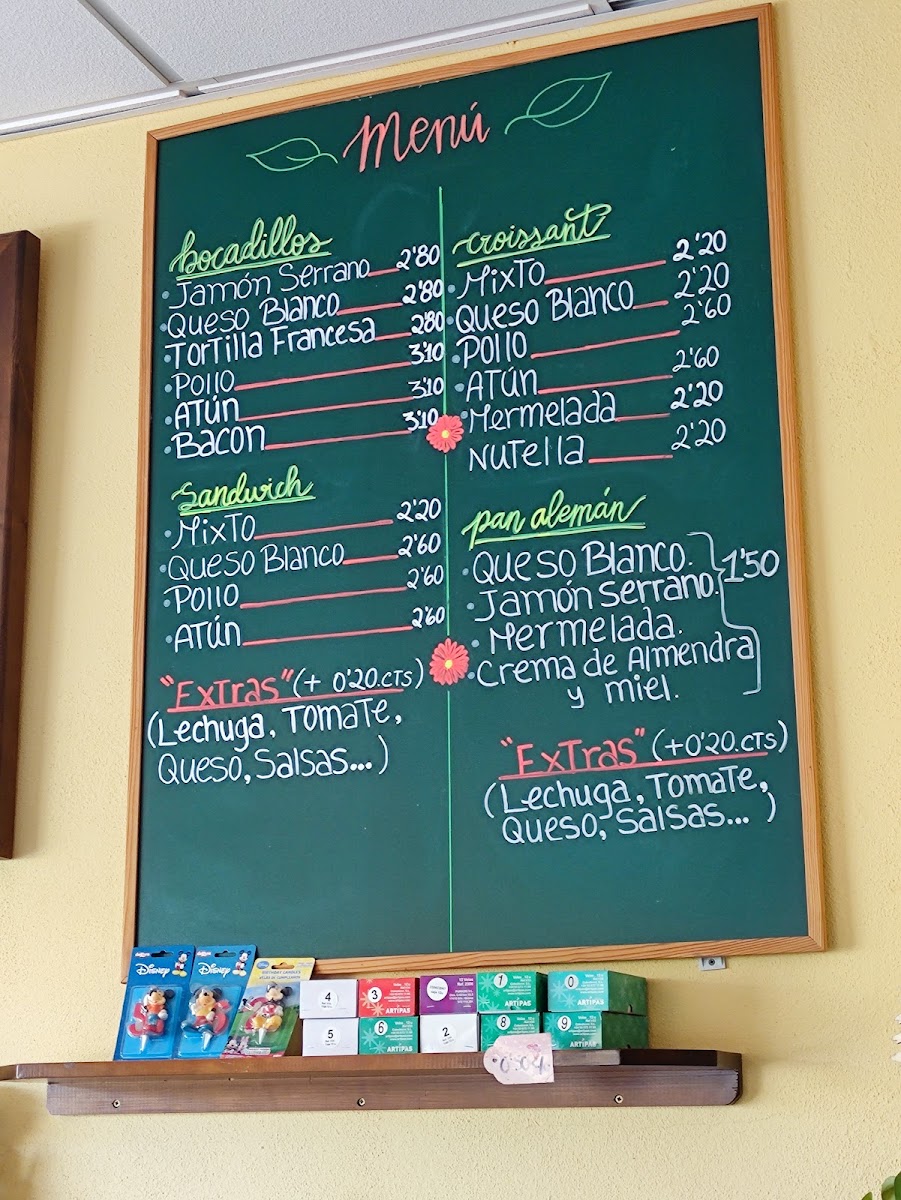 Menú
bocadillos
• Jamón Serrano 2'80
• Queso Blanco 2'80
• Tortilla Francesa 2'80
• Pollo 3'10
• ATÚn 3'10
• Bacon 3'10
Sandwich
• MixTo 2'20
• Queso Blanco 2'60
• Pollo 2'60
• ATÚn 2'60
"ExTras" (+ 0'20.cTs)
(Lechuga, TOmaTe,
Queso, Salsas...)
croissant
• MixTo 2'20
• Queso Blanco 2'20
• Pollo 2'60
• ATÚn 2'60
• Mermelada 2'20
NUTella 2'20
pan alemán
• Queso Blanco.
• Jamón Serrano. 1'50
• Mermelada.
• Crema de Almendra
y miel.
"ExTras" (+0'20.cTs)
(Lechuga, TomaTe,
Queso, Salsas... )
Disney
Disney
4
3
1
ARTIPAS
0
ARTIPAS
5
6
ARTIPAS
2
8
ARTIPAS
9
ARTIPAS